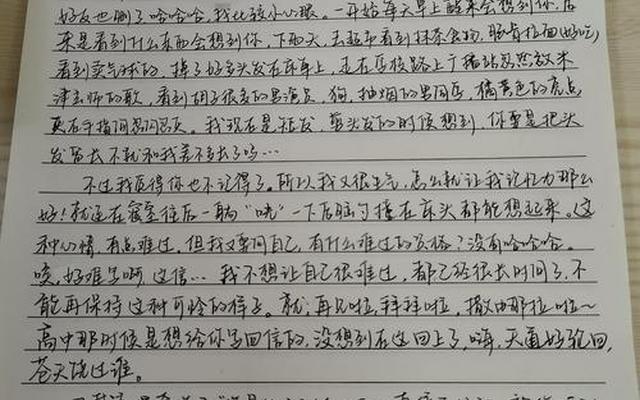 好友也删了哈哈哈,我比较小心眼。一开始每天早上醒来会想到你,后
来是看到什么东西会想到你,下雨天,去超市看到抹茶食物,肠骨拉面(好吃)
看到卖气球的,掉了好多头发在床单上,走在学校路上广播站忽然放米
津玄师的歌,看到胡子很多的男演员,狗,抽烟的男同学,橘黄色的亮点
夹在手指间忽闪忽灭。我现在是短发,剪头发的时候想到,你要是把头
发留长不就和我差不多了吗…
不过我觉得你也不记得了。所以我又很生气,怎么就让我记忆力那么
好!就连在寝室往后一躺"咣"一下后脑勺撞在床头都能想起来。这
种心情,有点难过。但我又要问自己,有什么难过的资格?没有哈哈哈。
唉,好难写啊,这信…我不想让自己很难过,都已经很长时间了,不
能再保持这种可怜的样子。就,再见啦,拜拜啦,撒由那拉一啦~
高中那时候是想给你写回信的,没想到在这回上了,嗨,天道好轮回,
苍天饶过谁。